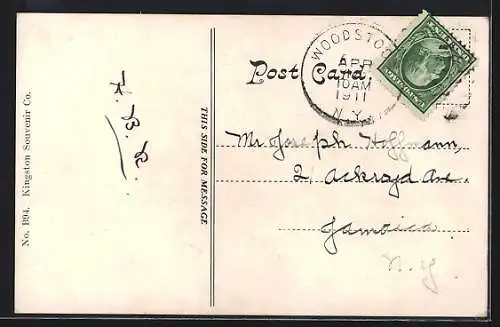 No. 1994. Kingston Souvenir Co.
THIS SIDE FOR MESSAGE
Post Card.
WOODSTOCK
APR
10 AM
1911
N.Y.
Mr Joseph Hoffmann,
21 Ackroyd Ave.
Jamaica.
N.Y